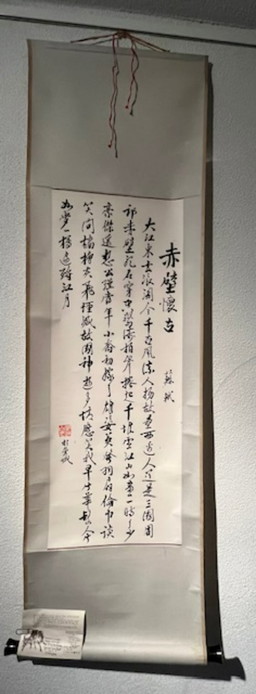 赤壁懷古
蘇軾
大江東去浪淘尽千古風流人物故垒西边人道是三國周
郎赤壁乱石穿空惊涛拍岸捲起千堆雪江山如畫一時多少
豪傑遥想公瑾當年小喬初嫁了雄姿英發羽扇綸巾談
笑间檣櫓灰飛煙滅故國神遊多情應笑我早生華髮人生
如夢一樽还酹江月